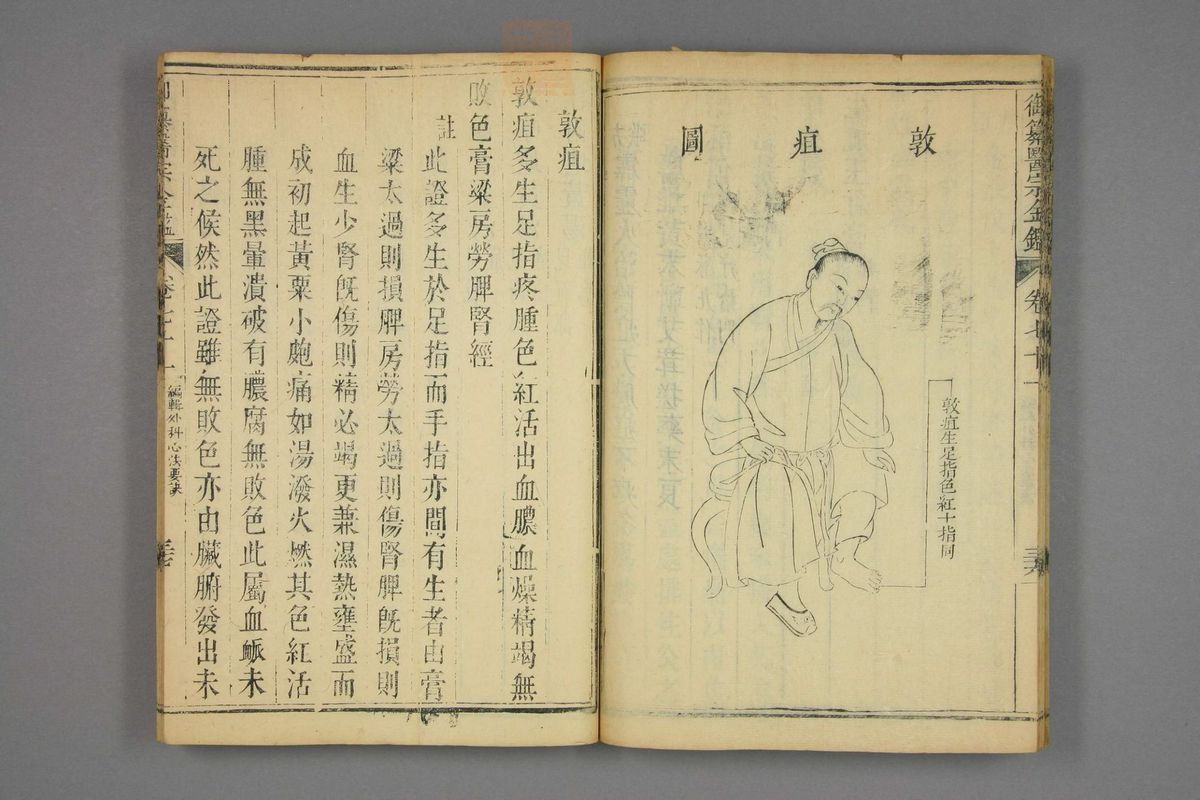 御纂醫宗金鑑 卷七十一
三六
敦疽圖
敦疽生足指色紅十指同
敦疽
敦疽多生足指疼腫色紅活出血膿血燥精竭無
敗色膏粱房勞脾腎經
註此證多生於足指而手指亦間有生者由膏
粱太過則損脾房勞太過則傷腎脾既損則
血生少腎既傷則精必竭更兼濕熱壅盛而
成初起黃粟小皰痛如湯潑火燃其色紅活
腫無黑暈潰破有膿腐無敗色此屬血䘐未
死之候然此證雖無敗色亦由臟腑發出未
卷七十一 編輯外科心法要訣